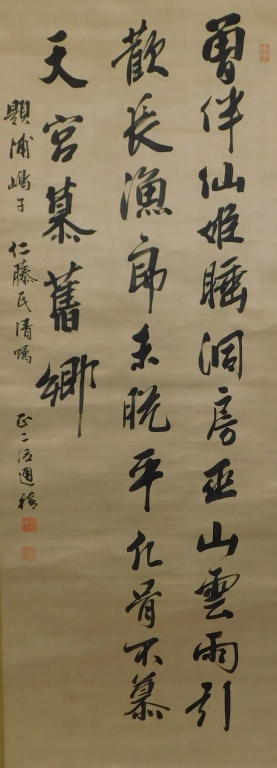 曽伴仙姫睡洞房巫山雲雨引
歡長漁郎未脱平凡骨不慕
天宮慕舊鄉
題浦嶋子 仁藤氏清嘱 正二位通禧